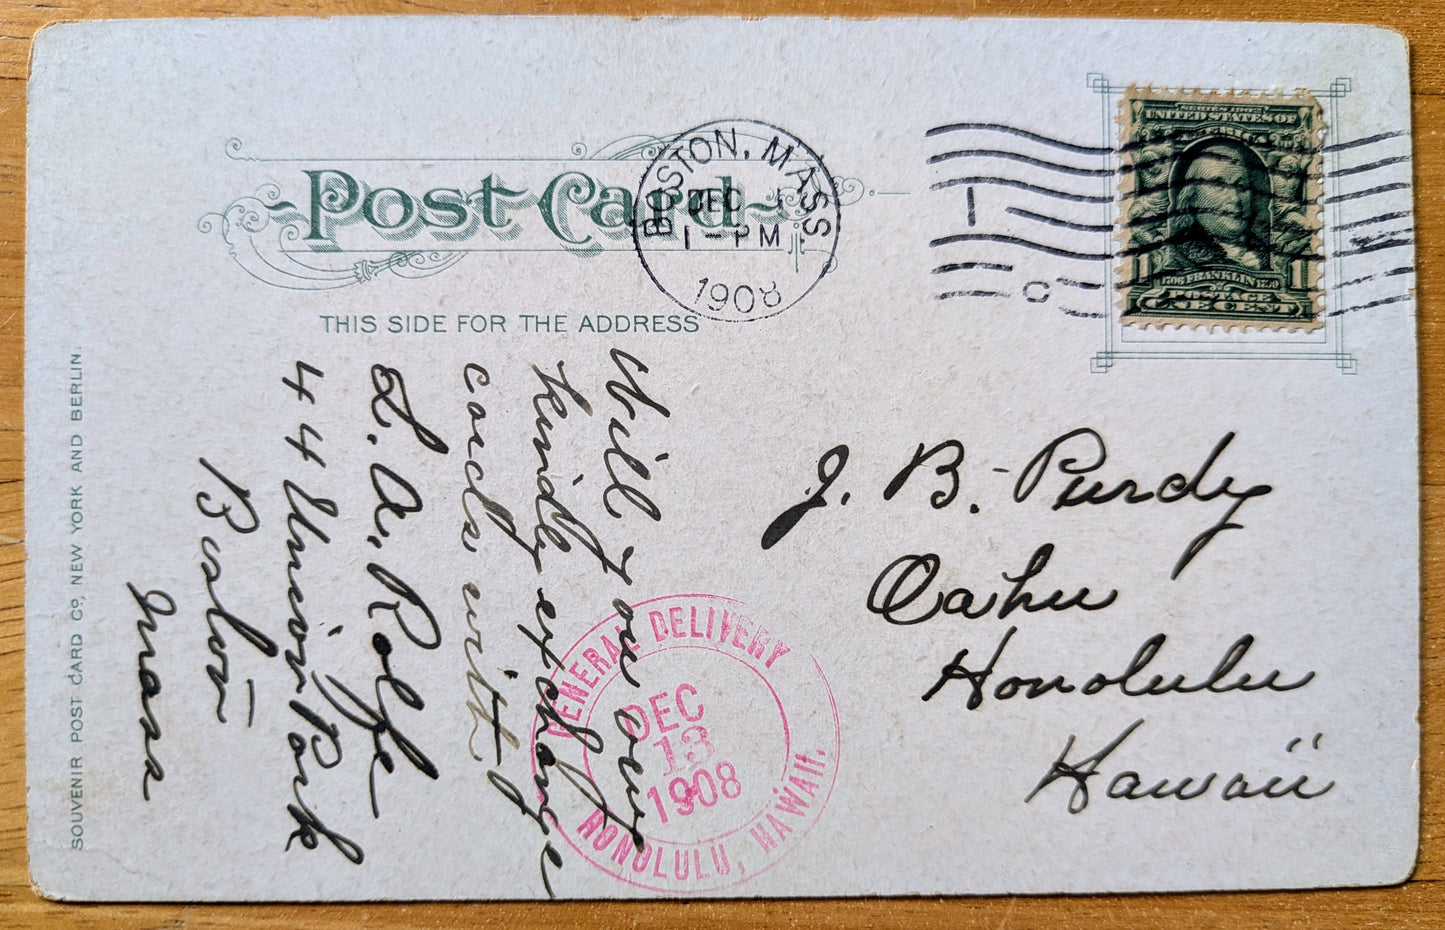 Post Card
THIS SIDE FOR THE ADDRESS
SOUVENIR POST CARD Co., NEW YORK AND BERLIN.
BOSTON, MASS.
DEC 1
1 - PM
1908
1
C
SERIES 1902
UNITED STATES OF AMERICA
1706 FRANKLIN 1790
1 1
POSTAGE
ONE CENT
J. B. Purdy
Oahu
Honolulu
Hawaii
Will you
kindly exchange
cards with
L. A. Rolfe
44 Union Park
Boston
Mass
GENERAL DELIVERY
DEC
13
1908
HONOLULU, HAWAII.